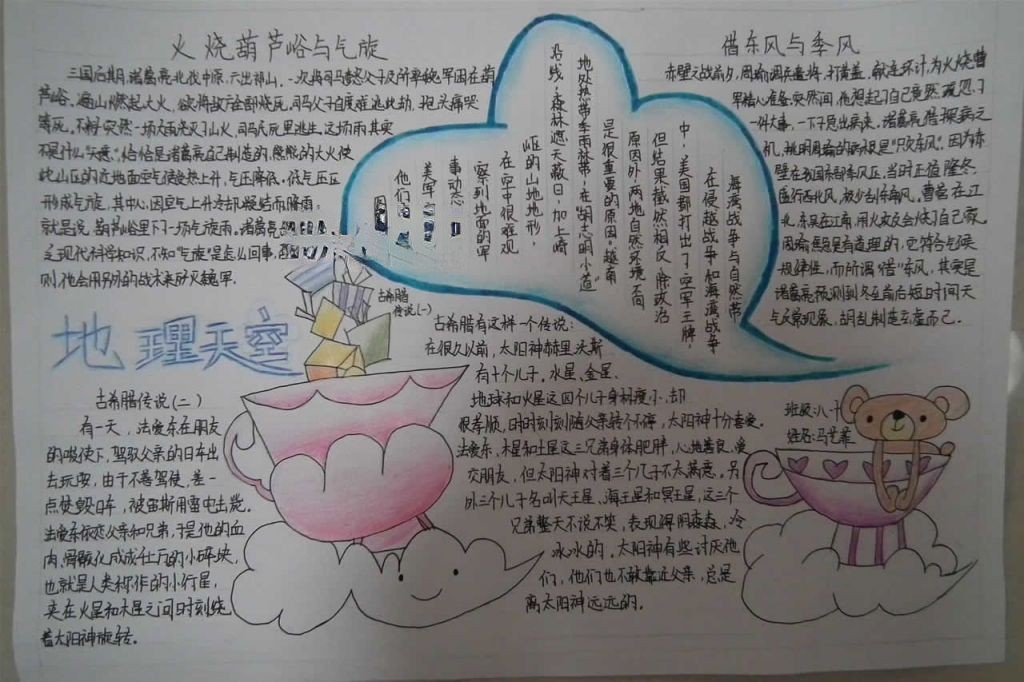 火烧葫芦峪与气旋
三国后期,诸葛亮北伐中原,六出祁山,一次将司马懿父子及所率魏军困在葫
芦峪。遍山燃起大火,欲将敌方全部烧死,司马父子自度难逃此劫,抱头痛哭
等死,不料突然一场大雨浇灭了山火,司马氏死里逃生。这场雨其实
不是什么"天意",恰恰是诸葛亮自己制造的,熊熊的大火使
此山区的近地面空气受热上升,气压降低,低气压区
形成气旋,其中心因空气上升冷却凝结而降雨,
就是说,葫芦峪里下了一场气旋雨,诸葛亮
之现代科学知识,不知"气旋"是怎么回事,
则他会用另外的战术来歼灭魏军
借东风与季风
赤壁之战前夕,周瑜调兵遣将,打黄盖,献连环计,为火烧曹
军精心准备,突然间,他想起了自己竟然疏忽了
一件大事,一下子急出病来,诸葛亮借探病之
机,挑明周瑜的病根是"只欠东风"。因为赤
壁在我国东部季风区,当时正值隆冬,
盛行西北风,极少刮东南风,曹营在江
北,东吴在江南,用火攻反会烧了自己寨,
周瑜焦急是有道理的,它符合气候
规律性,而所谓"借"东风,其实是
诸葛亮预测到冬至前后短时间天
气反常现象,胡乱制造玄虚而已。
海湾战争与自然带
在侵越战争和海湾战争
中,美国都打出了"空军王牌,
但结果截然相反,除政治
原因外,两地自然环境不同
是很重要的原因。越南
地处热带季雨林带,在"胡志明小道"
沿线,森林遮天蔽日,加上崎
岖的山地地形,
在空中很难观
察到地面的军
事动态
美军
他们
地理天空
古希腊
传说(一)
古希腊有这样一个传说:
在很久以前,太阳神赫里沃斯
有十个儿子,水星、金星、
地球和火星这四个儿子身材度小,却
很孝顺,时时刻刻随父亲转个不停,太阳神十分喜爱。
法爱东、木星和土星这三兄弟身体肥胖,心地善良,爱
交朋友,但太阳神对着三个儿子不太满意。另
外三个儿子名叫天王星、海王星和冥王星,这三个
兄弟整天不说不笑,表现得阴森森,冷
冰冰的,太阳神有些讨厌他
们,他们也不敢靠近父亲,总是
离太阳神远远的。
古希腊传说(二)
有一天,法爱东在朋友
的唆使下,驾驭父亲的日车出
去玩耍,由于不善驾使,差一
点使毁日车,被宙斯用雷电击毙。
法爱东依恋父亲和兄弟,于是他的血
肉、骨骸化成成仟上万的小碎块,
也就是人类称作的小行星,
夹在火星和木星之间时刻绕
着太阳神旋转。
班级:八·十
姓名:马艺菲